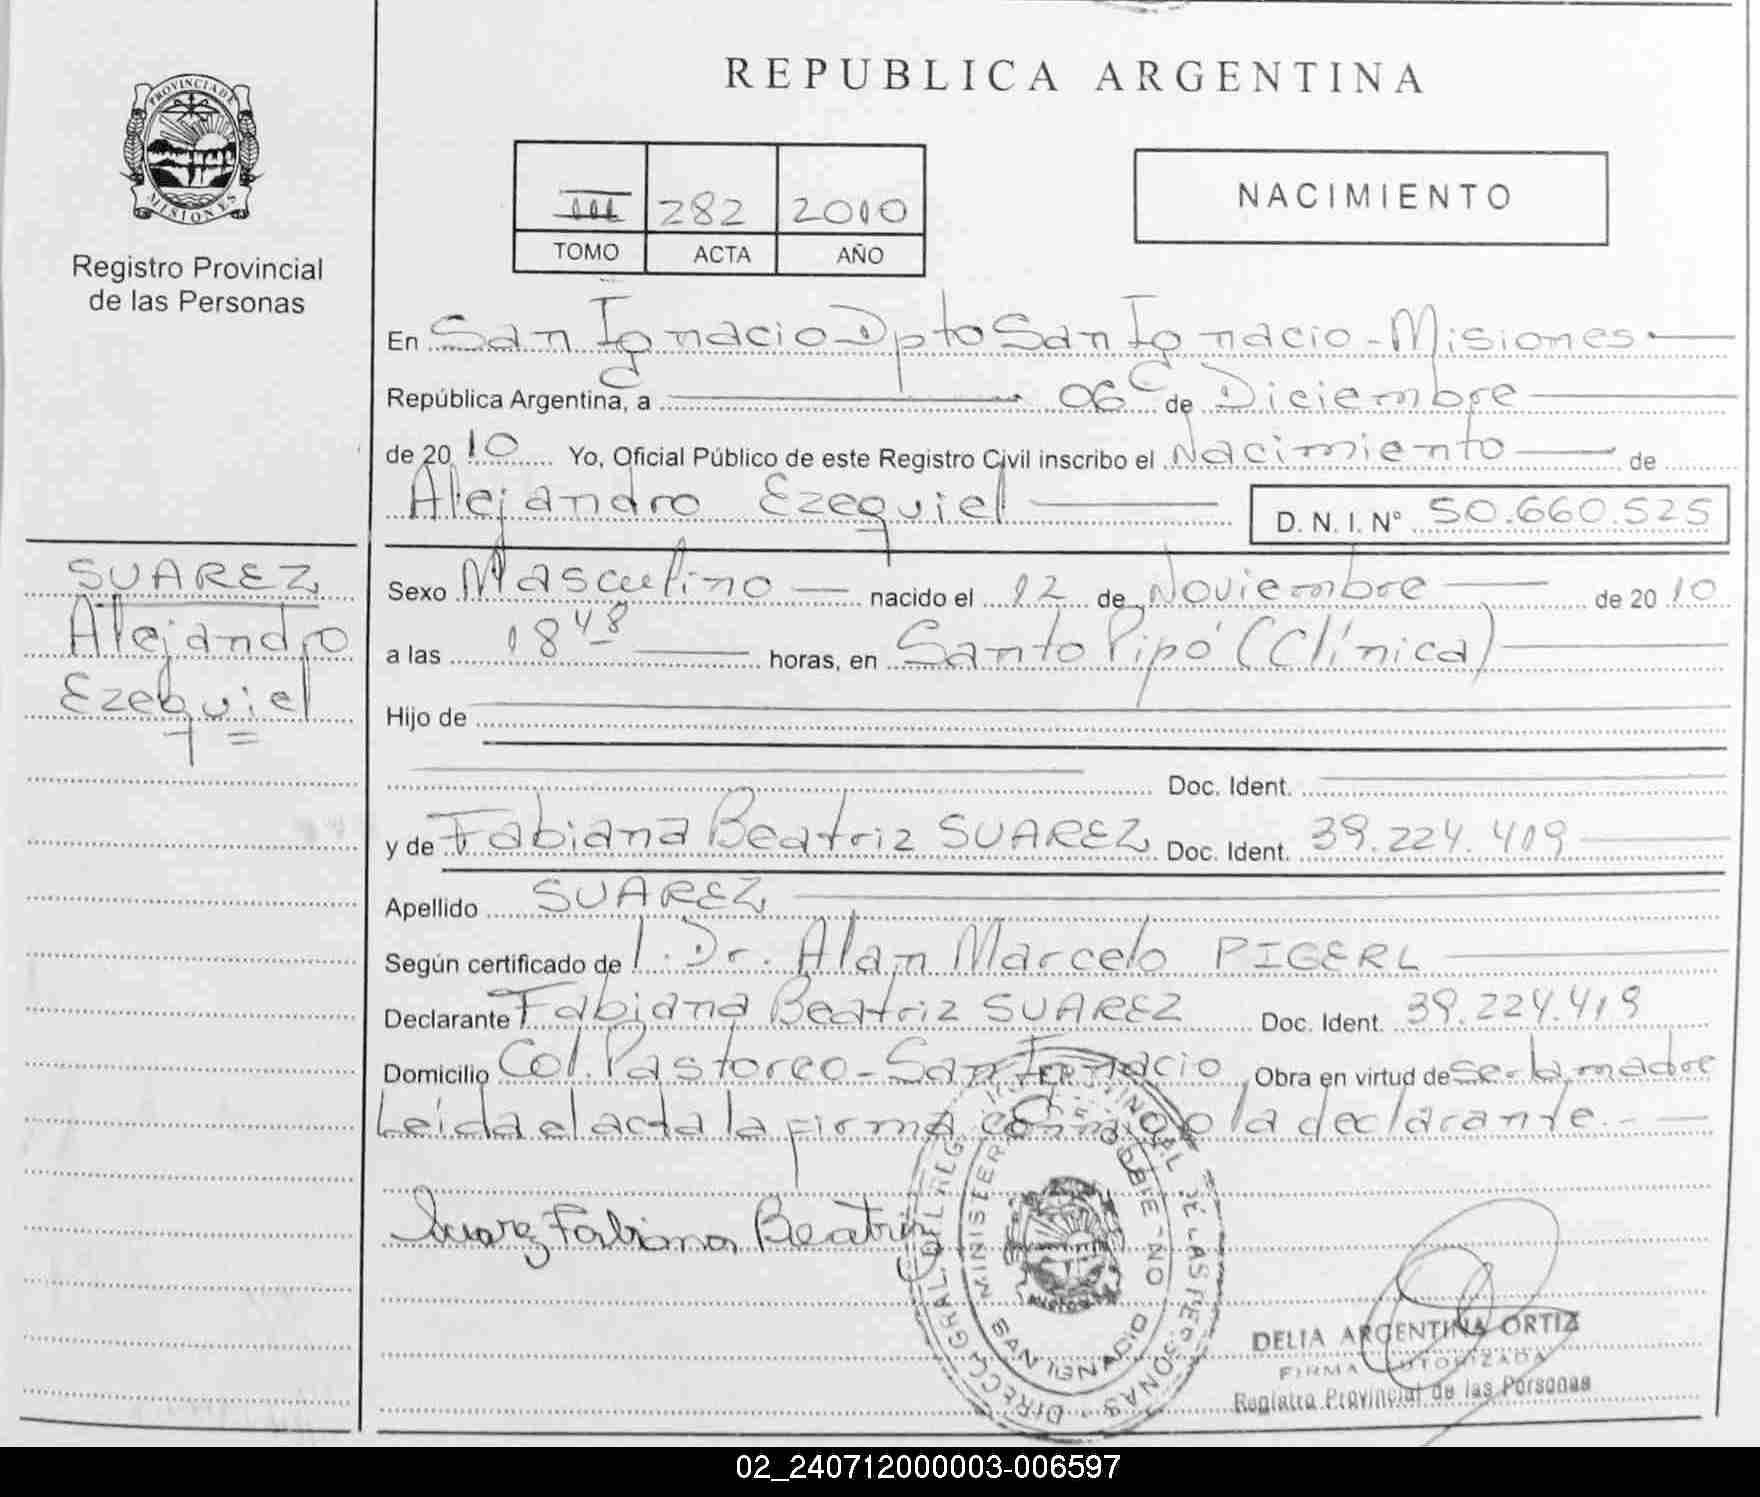 PROVINCIA DE
MISIONES
Registro Provincial
de las Personas
SUAREZ
Alejandro
Ezequiel
REPUBLICA ARGENTINA
III 282 2010
TOMO ACTA AÑO
NACIMIENTO
En San Ignacio Dpto San Ignacio - Misiones
República Argentina, a 06 de Diciembre
de 2010 Yo, Oficial Público de este Registro Civil inscribo el Nacimiento de
Alejandro Ezequiel D. N. I. N° 50.660.525
Sexo Masculino nacido el 12 de Noviembre de 2010
a las 18 48 horas, en Santo Pipó (Clínica)
Hijo de
Doc. Ident.
y de Fabiana Beatriz SUAREZ Doc. Ident. 39.224.419
Apellido SUAREZ
Según certificado de l. Dr. Alan Marcelo PIGERL
Declarante Fabiana Beatriz SUAREZ Doc. Ident. 39.224.419
Domicilio Col. Pastoreo - San Ignacio Obra en virtud de ser la madre
Leída el acta la firma conmigo la declarante. -
Suarez Fabiana Beatriz
MINISTERIO DE GOBIERNO
SAN IGNACIO
DELIA ARGENTINA ORTIZ
FIRMA AUTORIZADA
Registro Provincial de las Personas
02_240712000003-006597